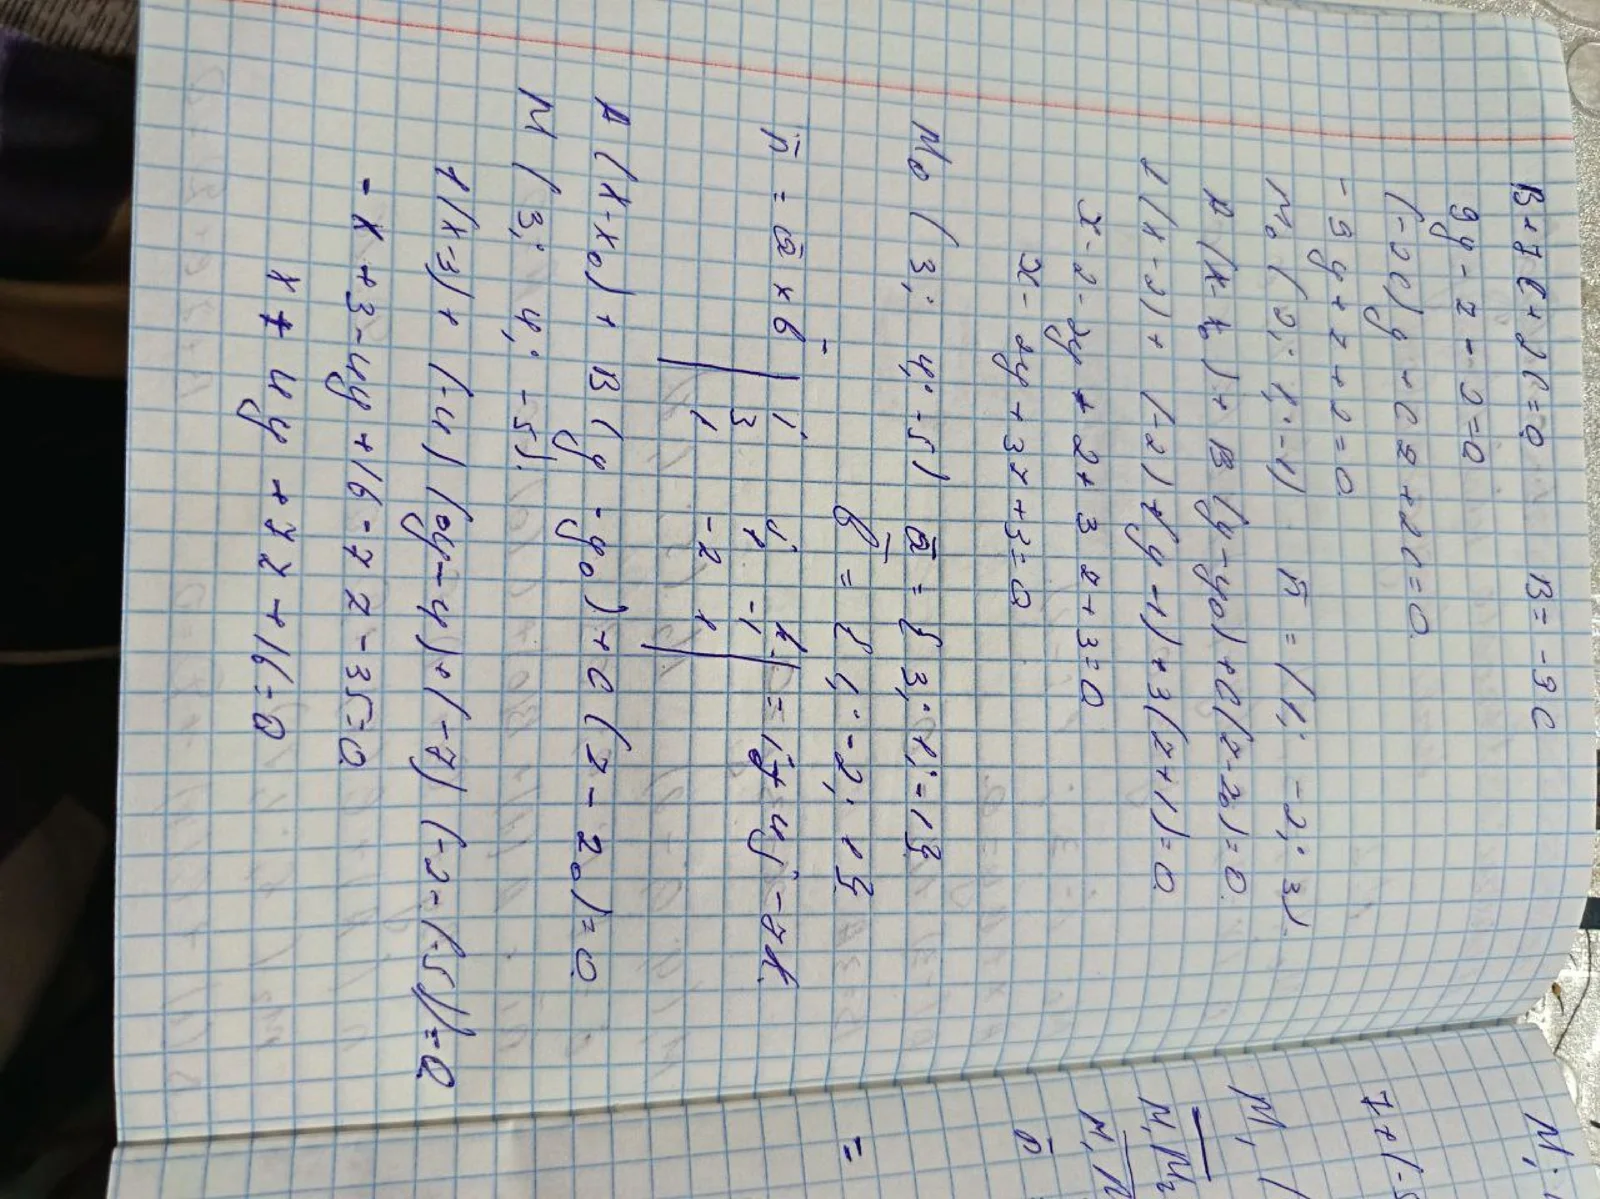 B+7C+2C=0 B=-9C
9y-z-2=0
(-9C)y+Cz+2C=0
-9y+z+2=0
M₀(2; 1; -1) n̄=(1; -2; 3)
A(x-x₀)+B(y-y₀)+C(z-z₀)=0
1(x-2)+(-2)(y-1)+3(z+1)=0
x-2-2y+2+3z+3=0
x-2y+3z+3=0
M₀(3; 4; -5) ā={3; 1; -1}
b̄={1; -2; 1}
n̄=ā×b̄ | i j k
3 1 -1
1 -2 1 | = -i-4j-7k
A(x-x₀)+B(y-y₀)+C(z-z₀)=0
M(3; 4; -5)
1(x-3)+(-4)(y-4)+(-7)(-2-(-5))=0
-x+3-4y+16-7z-35=0
x+4y+7z+16=0
M₁
M₁(
M₁M₂
=